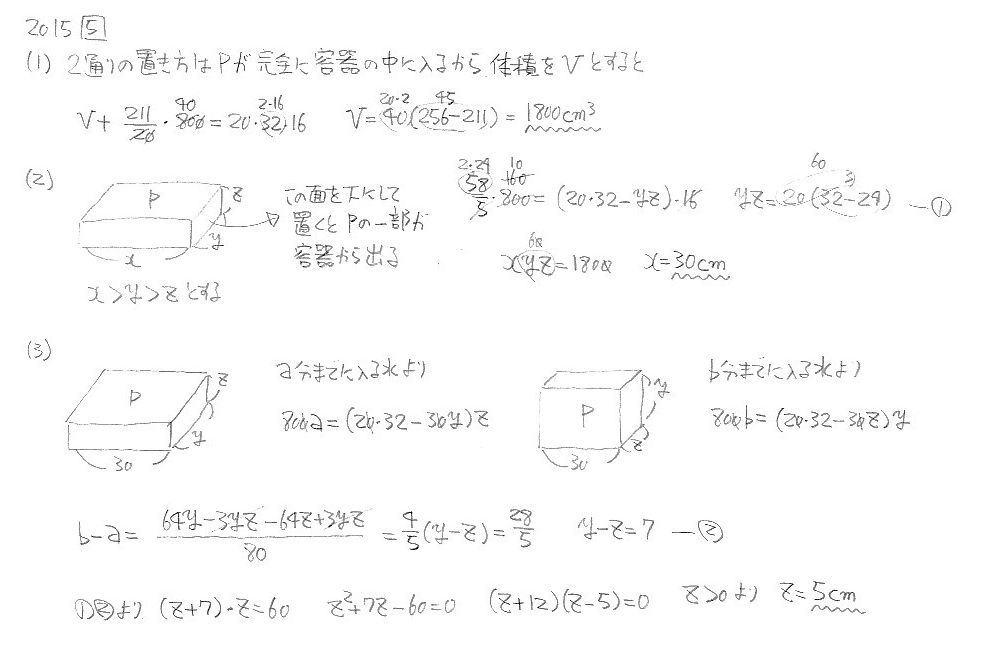 2015 5
(1) 2通りの置き方はPが完全に容器の中に入るから 体積をVとすると
V + 211/20 · 800 = 20·32·16   V = 40(256-211) = 1800cm³
40   2·16   20·2   45
(2)
P   x   y   z
x > y > z とする
この面を下にして
置くとPの一部が
容器から出る
58/5 · 800 = (20·32 - yz)·16   yz = 20(32-29) —①
2·29   10   160   60   3
x(yz) = 1800   x = 30cm
60
(3)
P   30   y   z
a分までに入る水より
800a = (20·32 - 30y)z
P   30   z   y
b分までに入る水より
800b = (20·32 - 30z)y
b-a = (64y - 3yz - 64z + 3yz)/80 = 4/5 (y-z) = 28/5   y-z = 7 —②
①②より (z+7)·z = 60   z²+7z-60=0   (z+12)(z-5)=0   z>0より z=5cm